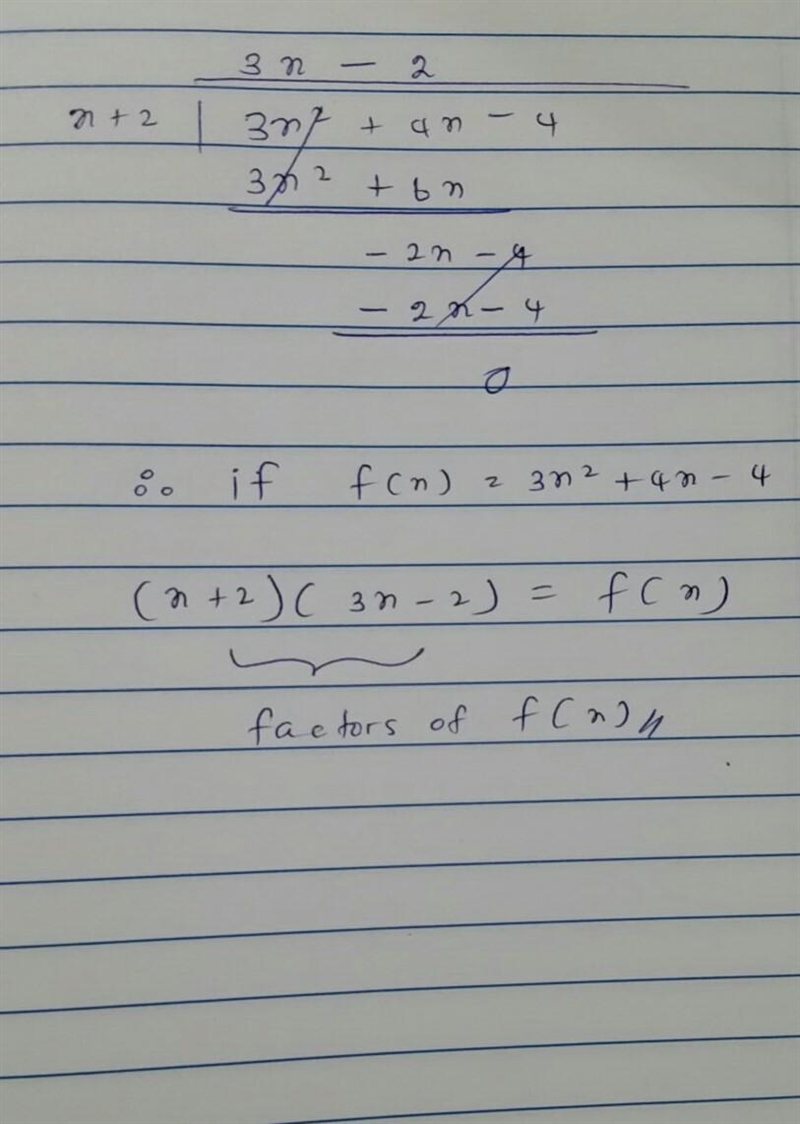 3x - 2
x + 2 | 3x² + 4x - 4
3x² + 6x
- 2x - 4
- 2x - 4
0
∴ if f(x) = 3x² + 4x - 4
(x + 2)( 3x - 2) = f(x)
factors of f(x) //